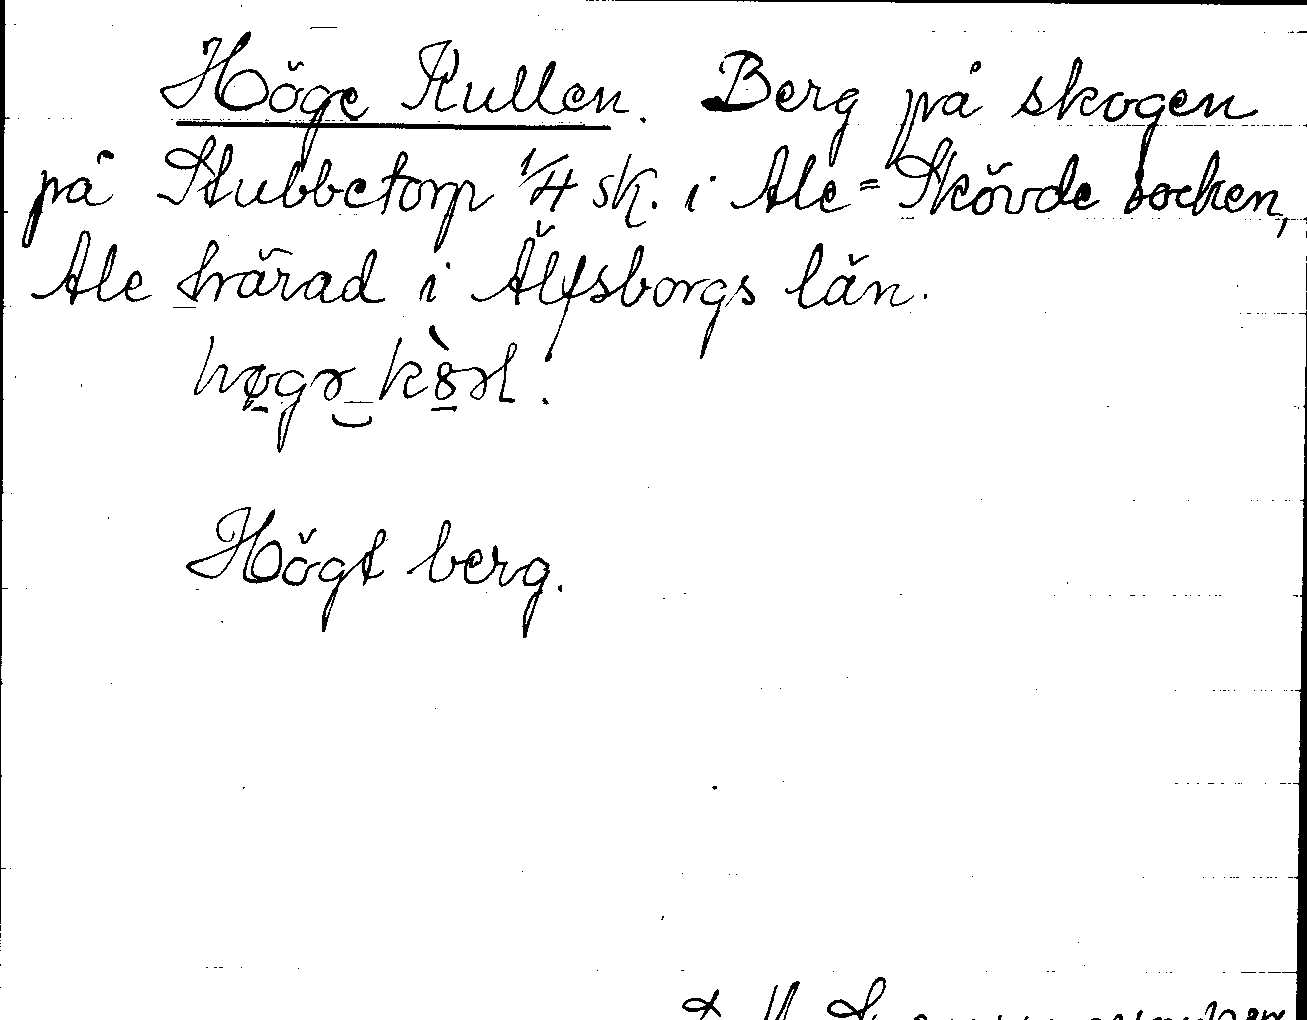 Höge Kullen. Berg på skogen
på Stubbetorp 1/4 sk. i Ale=Skövde socken,
Ale härad i Älfsborgs län.
Högt berg.